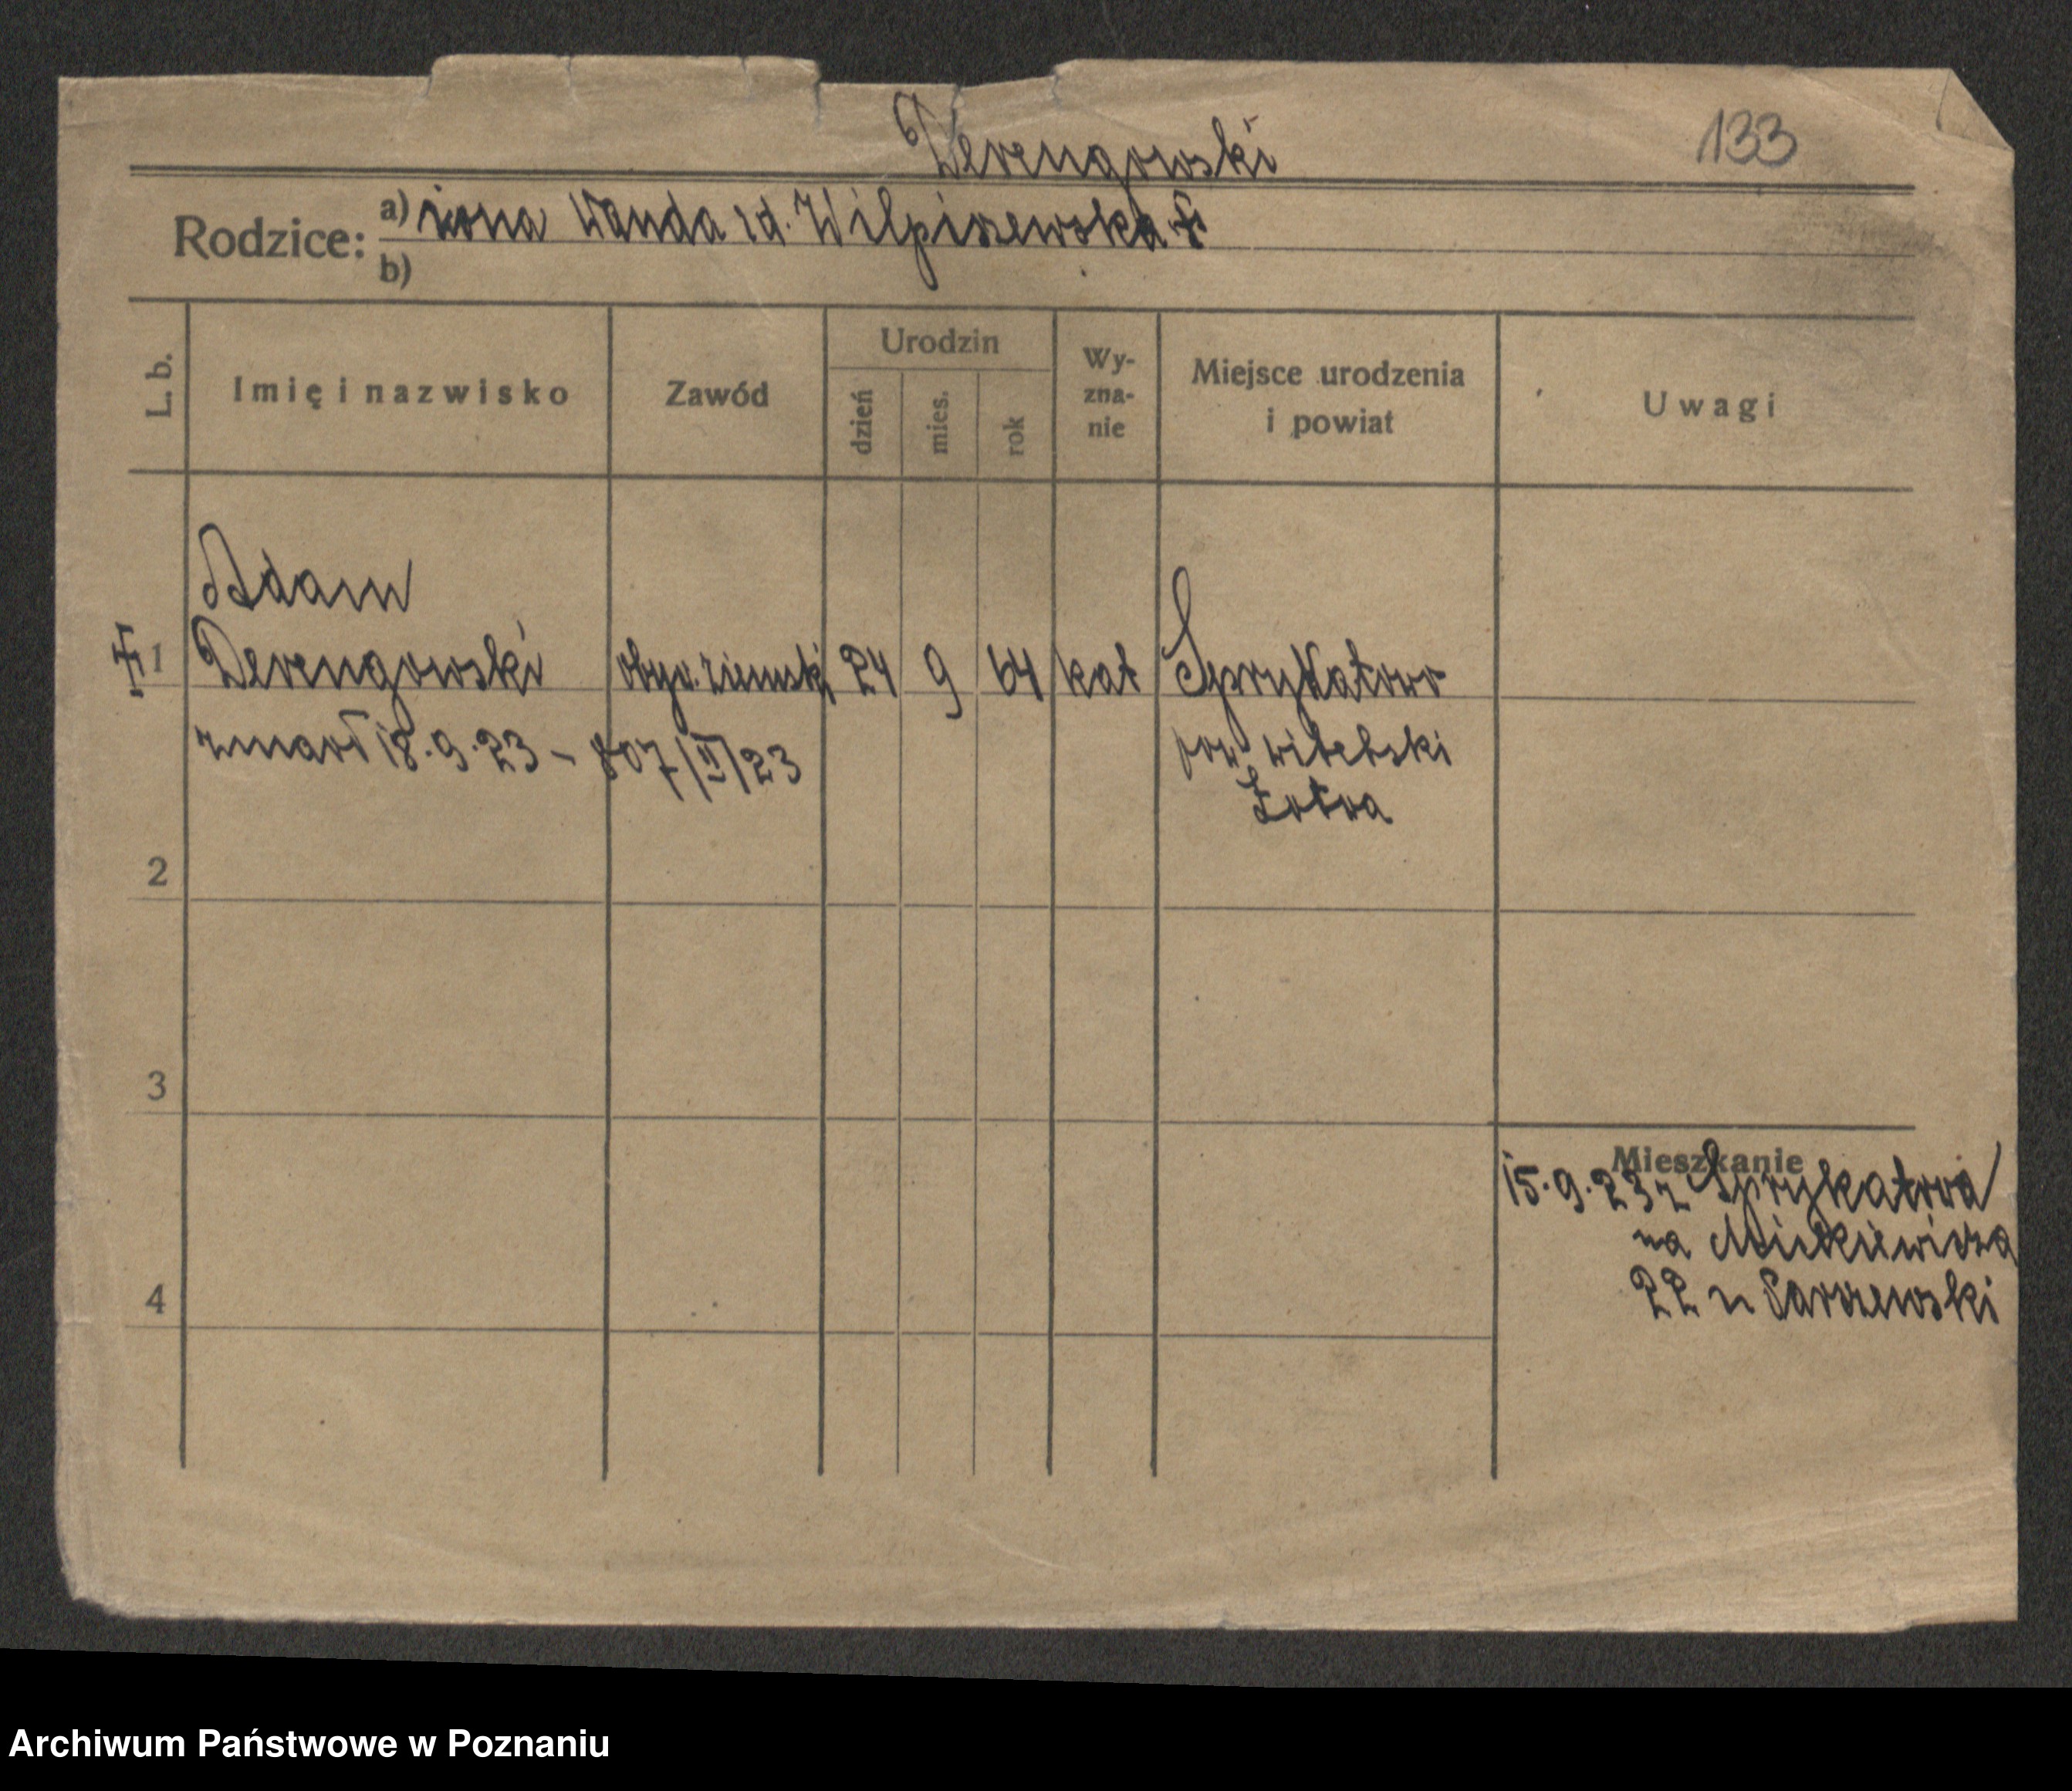 Derengowski
133
Rodzice: a) żona Wanda zd. Wilpiszewska †
b)
L. b.
Imię i nazwisko
Zawód
Urodzin
dzień
mies.
rok
Wy-
zna-
nie
Miejsce urodzenia
i powiat
Uwagi
Adam
† 1 Derengowski obyw. ziemski 24 9 64 kat Sprykatowo
zmarł 18.9.23 - 807/II/23 pow witebski
Łotwa
2
3
Mieszkanie
15.9.23 z Sprykatowa
na Mickiewicza
22 u Sarrzewski
4
Archiwum Państwowe w Poznaniu